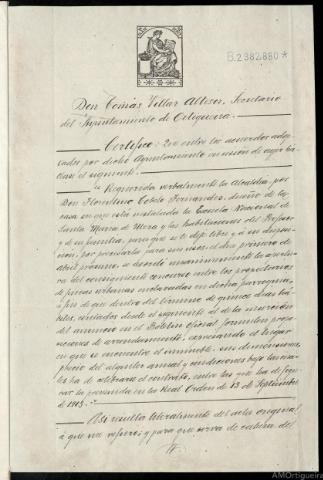 B.2382.880*
Don Tomás Villar Alteser, Secretario
del Ayuntamiento de Ortigueira.
Certifico: Que entre los acuerdos adop-
tados por dicho Ayuntamiento en sesión de ayer há-
llase el siguiente:
"Requerida verbalmente la Alcaldía, por
Don Florentino Cobelo Fernández, dueño de la
casa en que está instalada la Escuela Nacional de
Santa María de Mera y las habitaciones del Profesor
y de su familia, para que se le deje libre y á su disposi-
ción, por precisarla para su uso, el día primero de
abril próximo, se acordó unánimemente la apertu-
ra del consiguiente concurso entre los propietarios
de fincas urbanas enclavadas en dicha parroquia,
á fin de que dentro del término de quince días há-
biles, contados desde el siguiente al de la inserción
del anuncio en el Boletín oficial, formulen propo-
siciones de arrendamiento, expresando el lugar
en que se encuentre el inmueble, sus dimensiones,
precio del alquiler anual y condiciones bajo las cua-
les ha de celebrarse el contrato, entre las que ha de figu-
rar la prevenida en la Real Orden de 13 de Septiembre
de 1913."
Así resulta literalmente del acta original
á que me refiero; y para que sirva de cabeza del
AMOrtigueira